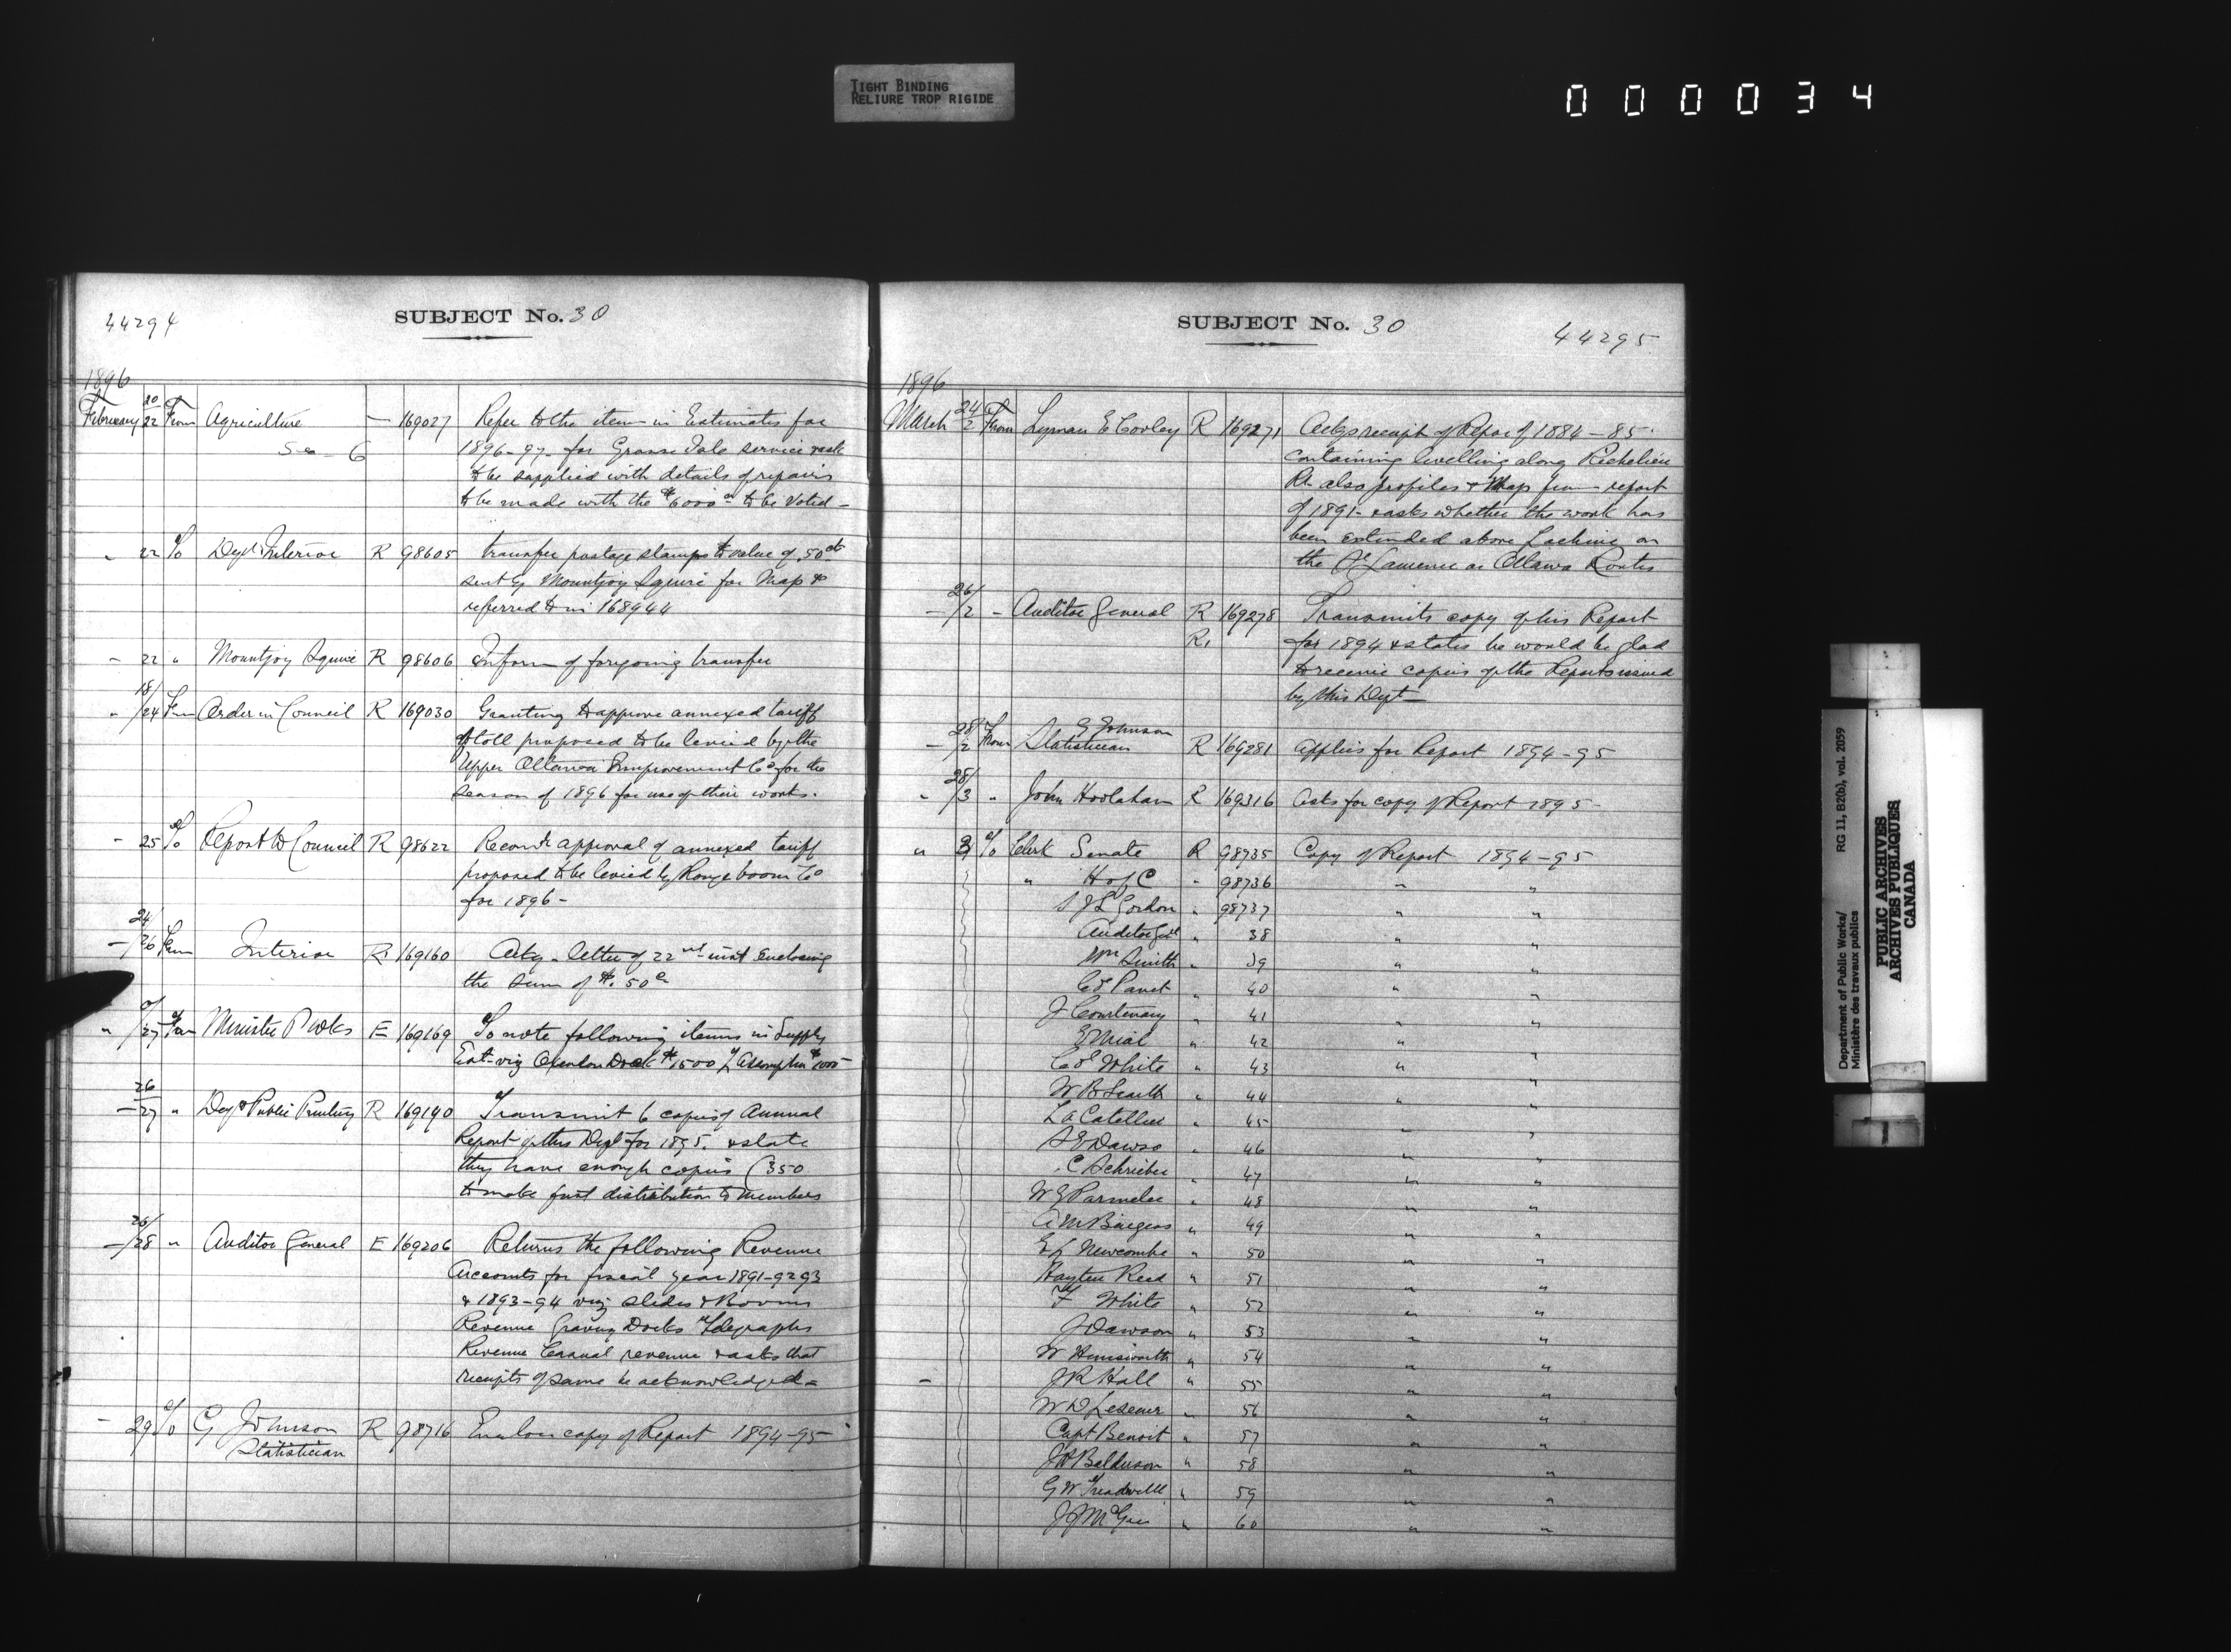 TIGHT BINDING
RELIURE TROP RIGIDE
000034
44294
SUBJECT No. 30
1896
February 20/22 From Agriculture — 169027 Refer to the item in Estimates for
Sea 6 1896-97- for Grosse Isle service & ask
to be supplied with details of repairs
to be made with the $6000 to be voted -
" 22 To Dept Interior R 98605 transfer postage stamps to value of 50 cts
sent by Mountjoy Squire for Map &
referred to in 168944
- 22 " Mountjoy Squire R 98606 Inform of foregoing transfer
" 18/24 From Order in Council R 169030 Granting & approve annexed tariff
of toll proposed to be levied by the
Upper Ottawa Improvement Co for the
season of 1896 for use of their works.
- 25 To Report to Council R 98622 Recomd approval of annexed tariff
proposed to be levied by Rouge boom Co
for 1896 -
- 24/26 From Interior R 169160 Ackg- letter of 22nd inst enclosing
the sum of $.50
" 27 From Minister P Wks E 169169 To note following items in Supply
Est- viz Dock $1500 L'Assomption $1000
- 26/27 " Dept Public Printing R 169140 Transmit 6 copies of Annual
Report of this Dept for 1895. & state
they have enough copies (350
to make first distribution to members
- 26/28 " Auditor General E 169206 Returns the following Revenue
Accounts for fiscal year 1891-92 93
& 1893-94 viz Slides & Booms
Revenue Graving Docks Telegraphs
Revenue Casual revenue & asks that
receipts of same be acknowledged -
- 29 To G Johnson R 98716 Enclose copy of Report 1894-95
Statistician
SUBJECT No. 30
44295
1896
March 24/2 From Lyman E Cooley R 169271 Ackgs receipt of Repor of 1884-85
containing levelling along Richelieu
R- also profiles & Map from report
of 1891- & asks whether the work has
been extended above Lachine on
the St Lawrence or Ottawa Routes
- 26/2 - Auditor General R 169278 Transmits copy of his Report
R. for 1894 & states he would be glad
to receive copies of the Reports issued
by this Dept -
G Johnson
- 28/2 From Statistician R 169281 applies for Report 1894-95
" 28/3 " John Hoolahan R 169316 asks for copy of Report 1895-
" 3 To Clerk Senate R 98735 Copy of Report 1894-95
" H of C " 98736 " "
S J L Gordon " 98737 " "
Auditor Genl " 38 " "
Wm Smith " 39 " "
Col Panet " 40 " "
J Courtenay " 41 " "
E Miall " 42 " "
Col White " 43 " "
W B Smith " 44 " "
L A Catellier " 45 " "
S E Dawso " 46 " "
C Schrieber " 47 " "
W G Parmelee " 48 " "
A M Burgess " 49 " "
E L Newcombe " 50 " "
Hayter Reed " 51 " "
F White " 52 " "
J Dawson " 53 " "
W Himsworth " 54 " "
- J R Hall " 55 " "
W D Lesueur " 56 " "
Capt Benoit " 57 " "
J H Balderson " 58 " "
G W Treadwell " 59 " "
J J McGee " 60 " "
Department of Public Works/
Ministère des travaux publics
RG 11, B2(b), vol. 2059
PUBLIC ARCHIVES
ARCHIVES PUBLIQUES
CANADA